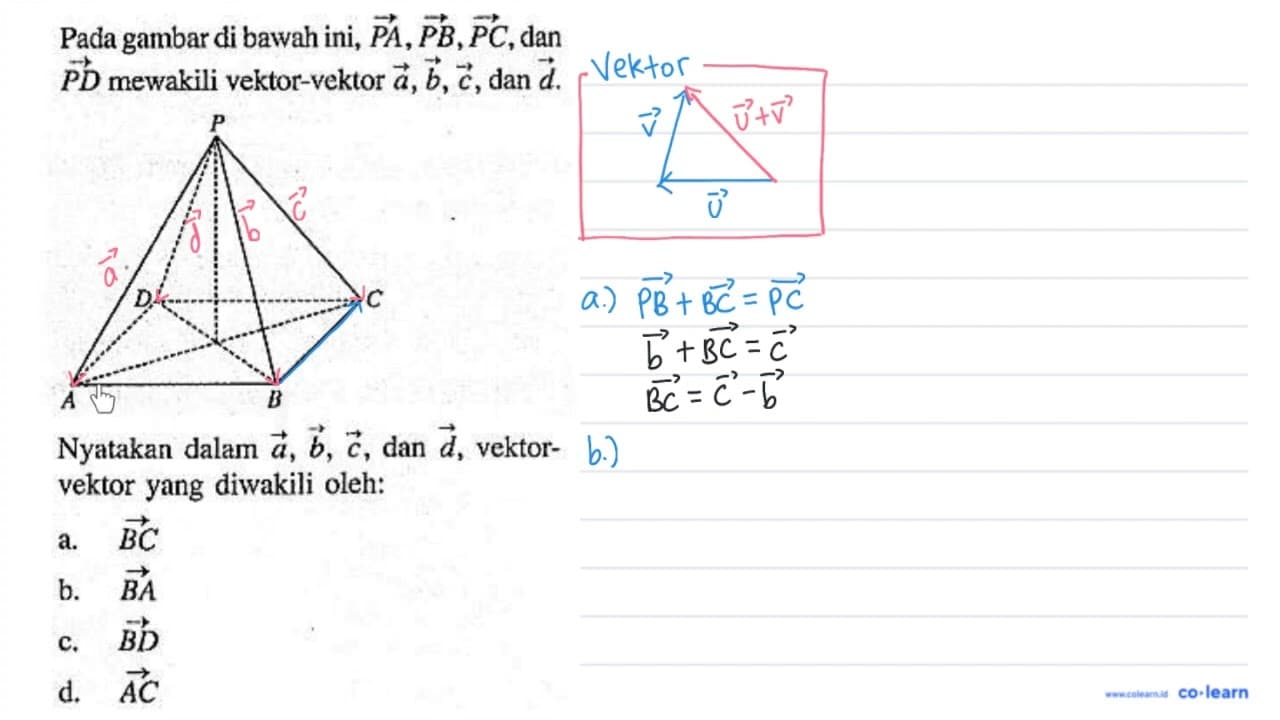 Pada gambar di bawah ini, $\vec{PA}$, $\vec{PB}$, $\vec{PC}$, dan
$\vec{PD}$ mewakili vektor-vektor $\vec{a}$, $\vec{b}$, $\vec{c}$, dan $\vec{d}$.
P
$\vec{a}$
$\vec{d}$
$\vec{b}$
$\vec{c}$
D
C
A
B
Nyatakan dalam $\vec{a}$, $\vec{b}$, $\vec{c}$, dan $\vec{d}$, vektor-
vektor yang diwakili oleh:
a. $\vec{BC}$
b. $\vec{BA}$
c. $\vec{BD}$
d. $\vec{AC}$
Vektor
$\vec{v}$
$\vec{u}+\vec{v}$
$\vec{u}$
a.) $\vec{PB} + \vec{BC} = \vec{PC}$
$\vec{b} + \vec{BC} = \vec{c}$
$\vec{BC} = \vec{c} - \vec{b}$
b.)
www.colearn.id co·learn